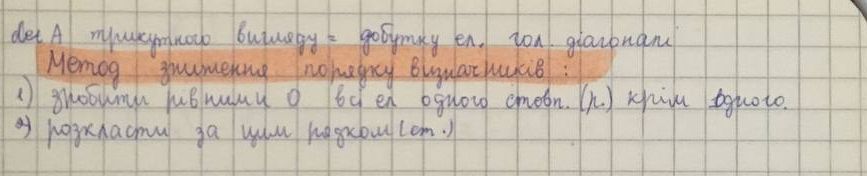 det A трикутного вигляду = добутку ел. гол. діагоналі
Метод зниження порядку визначників:
1) зробити рівними 0 всі ел одного стовп. (р.) крім одного.
2) розкласти за цим рядком (ст.)